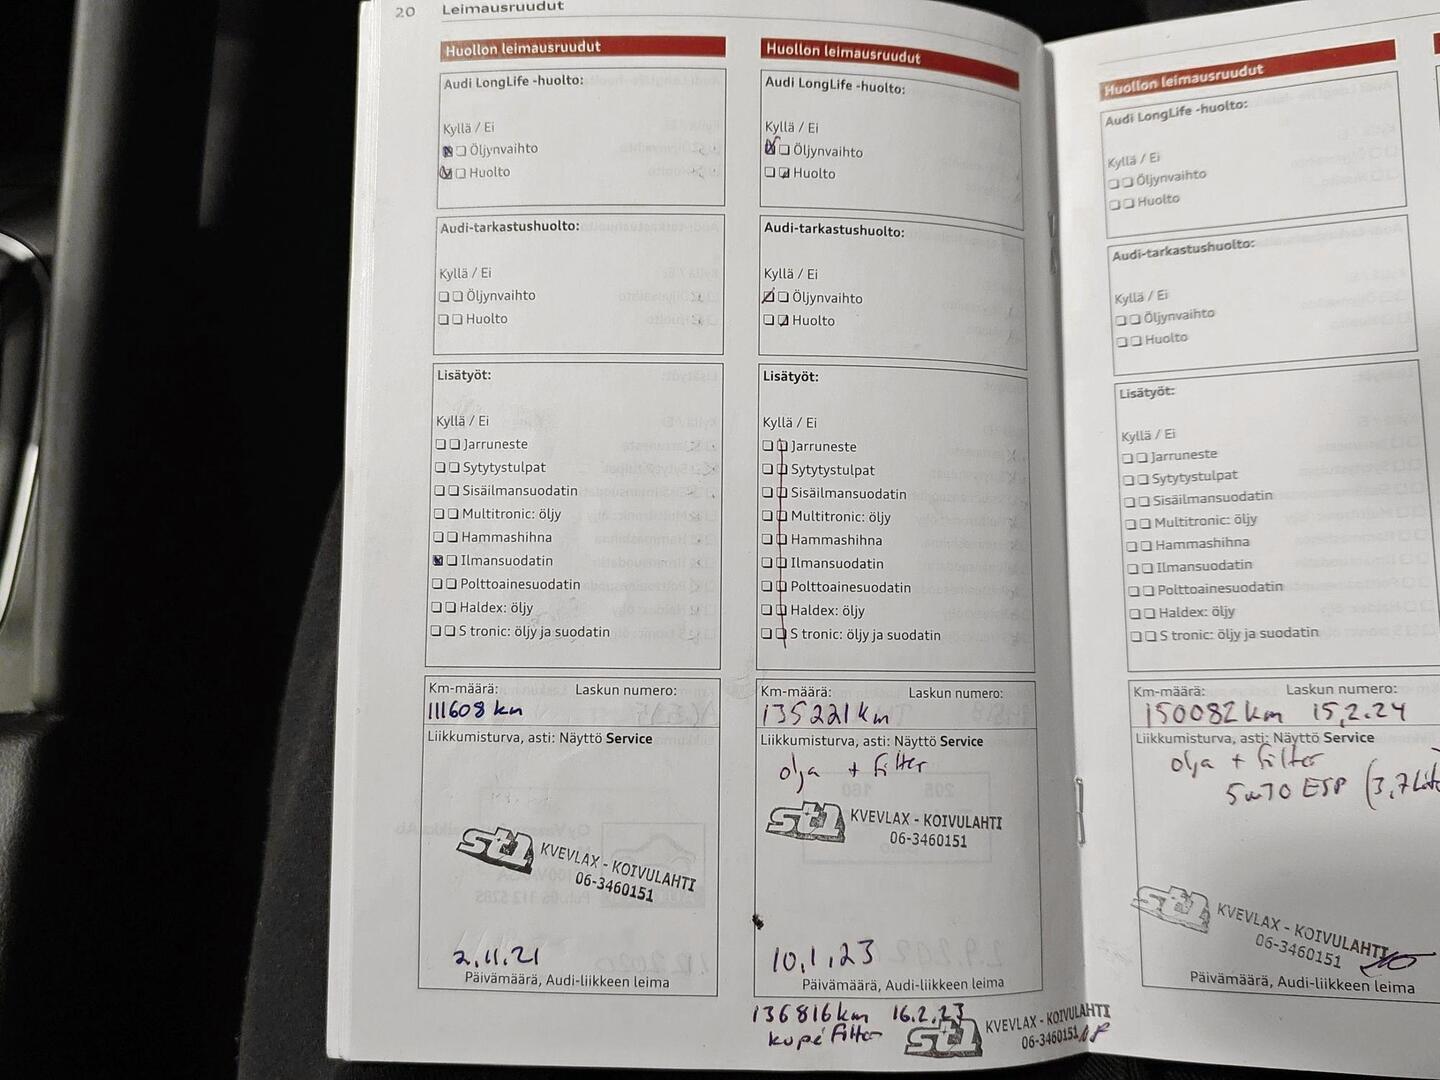 20 Leimausruudut
Huollon leimausruudut
Audi LongLife -huolto:
Kyllä / Ei
Öljynvaihto
Huolto
Audi-tarkastushuolto:
Kyllä / Ei
Öljynvaihto
Huolto
Lisätyöt:
Kyllä / Ei
Jarruneste
Sytytystulpat
Sisäilmansuodatin
Multitronic: öljy
Hammashihna
Ilmansuodatin
Polttoainesuodatin
Haldex: öljy
S tronic: öljy ja suodatin
Km-määrä: Laskun numero:
111608 km
Liikkumisturva, asti: Näyttö Service
st1 KVEVLAX - KOIVULAHTI
06-3460151
2.11.21
Päivämäärä, Audi-liikkeen leima
Huollon leimausruudut
Audi LongLife -huolto:
Kyllä / Ei
Öljynvaihto
Huolto
Audi-tarkastushuolto:
Kyllä / Ei
Öljynvaihto
Huolto
Lisätyöt:
Kyllä / Ei
Jarruneste
Sytytystulpat
Sisäilmansuodatin
Multitronic: öljy
Hammashihna
Ilmansuodatin
Polttoainesuodatin
Haldex: öljy
S tronic: öljy ja suodatin
Km-määrä: Laskun numero:
135221 km
Liikkumisturva, asti: Näyttö Service
olja + filter
st1 KVEVLAX - KOIVULAHTI
06-3460151
10.1.23
Päivämäärä, Audi-liikkeen leima
136816 km 16.2.23
kupé filter
st1 KVEVLAX - KOIVULAHTI
06-3460151
Huollon leimausruudut
Audi LongLife -huolto:
Kyllä / Ei
Öljynvaihto
Huolto
Audi-tarkastushuolto:
Kyllä / Ei
Öljynvaihto
Huolto
Lisätyöt:
Kyllä / Ei
Jarruneste
Sytytystulpat
Sisäilmansuodatin
Multitronic: öljy
Hammashihna
Ilmansuodatin
Polttoainesuodatin
Haldex: öljy
S tronic: öljy ja suodatin
Km-määrä: Laskun numero:
150082 km 15.2.24
Liikkumisturva, asti: Näyttö Service
olja + filter
ESP (3,7
st1 KVEVLAX - KOIVULAHTI
06-3460151
Päivämäärä, Audi-liikkeen leima